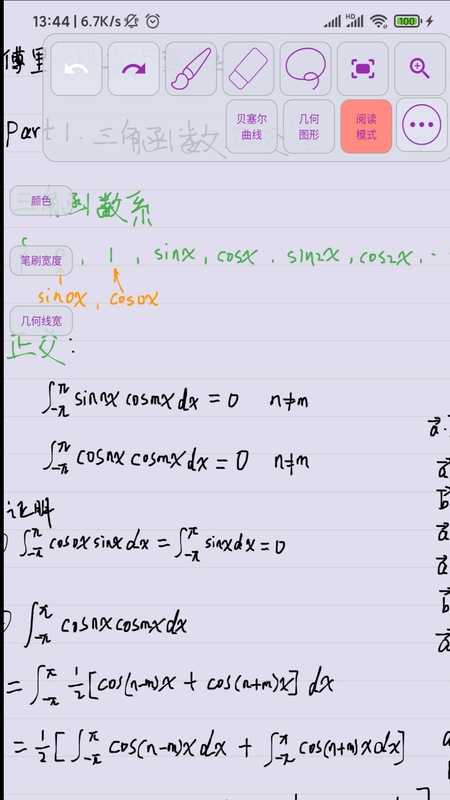 13:44 | 6.7K/s
HD
100
贝塞尔曲线
几何图形
阅读模式
Part 1. 三角函数
颜色
三角函数系
笔刷宽度
, 1 , sinx , cosx , sin2x , cos2x , ..
sin0x , cos0x
几何线宽
正交:
∫_{-π}^{π} sin nx cos mx dx = 0 n≠m
∫_{-π}^{π} cos nx cos mx dx = 0 n≠m
证明
∫_{-π}^{π} cos0x sinx dx = ∫_{-π}^{π} sinx dx = 0
∫_{-π}^{π} cos nx cos mx dx
= ∫_{-π}^{π} 1/2 [cos(n-m)x + cos(n+m)x] dx
= 1/2 [∫_{-π}^{π} cos(n-m)x dx + ∫_{-π}^{π} cos(n+m)x dx]